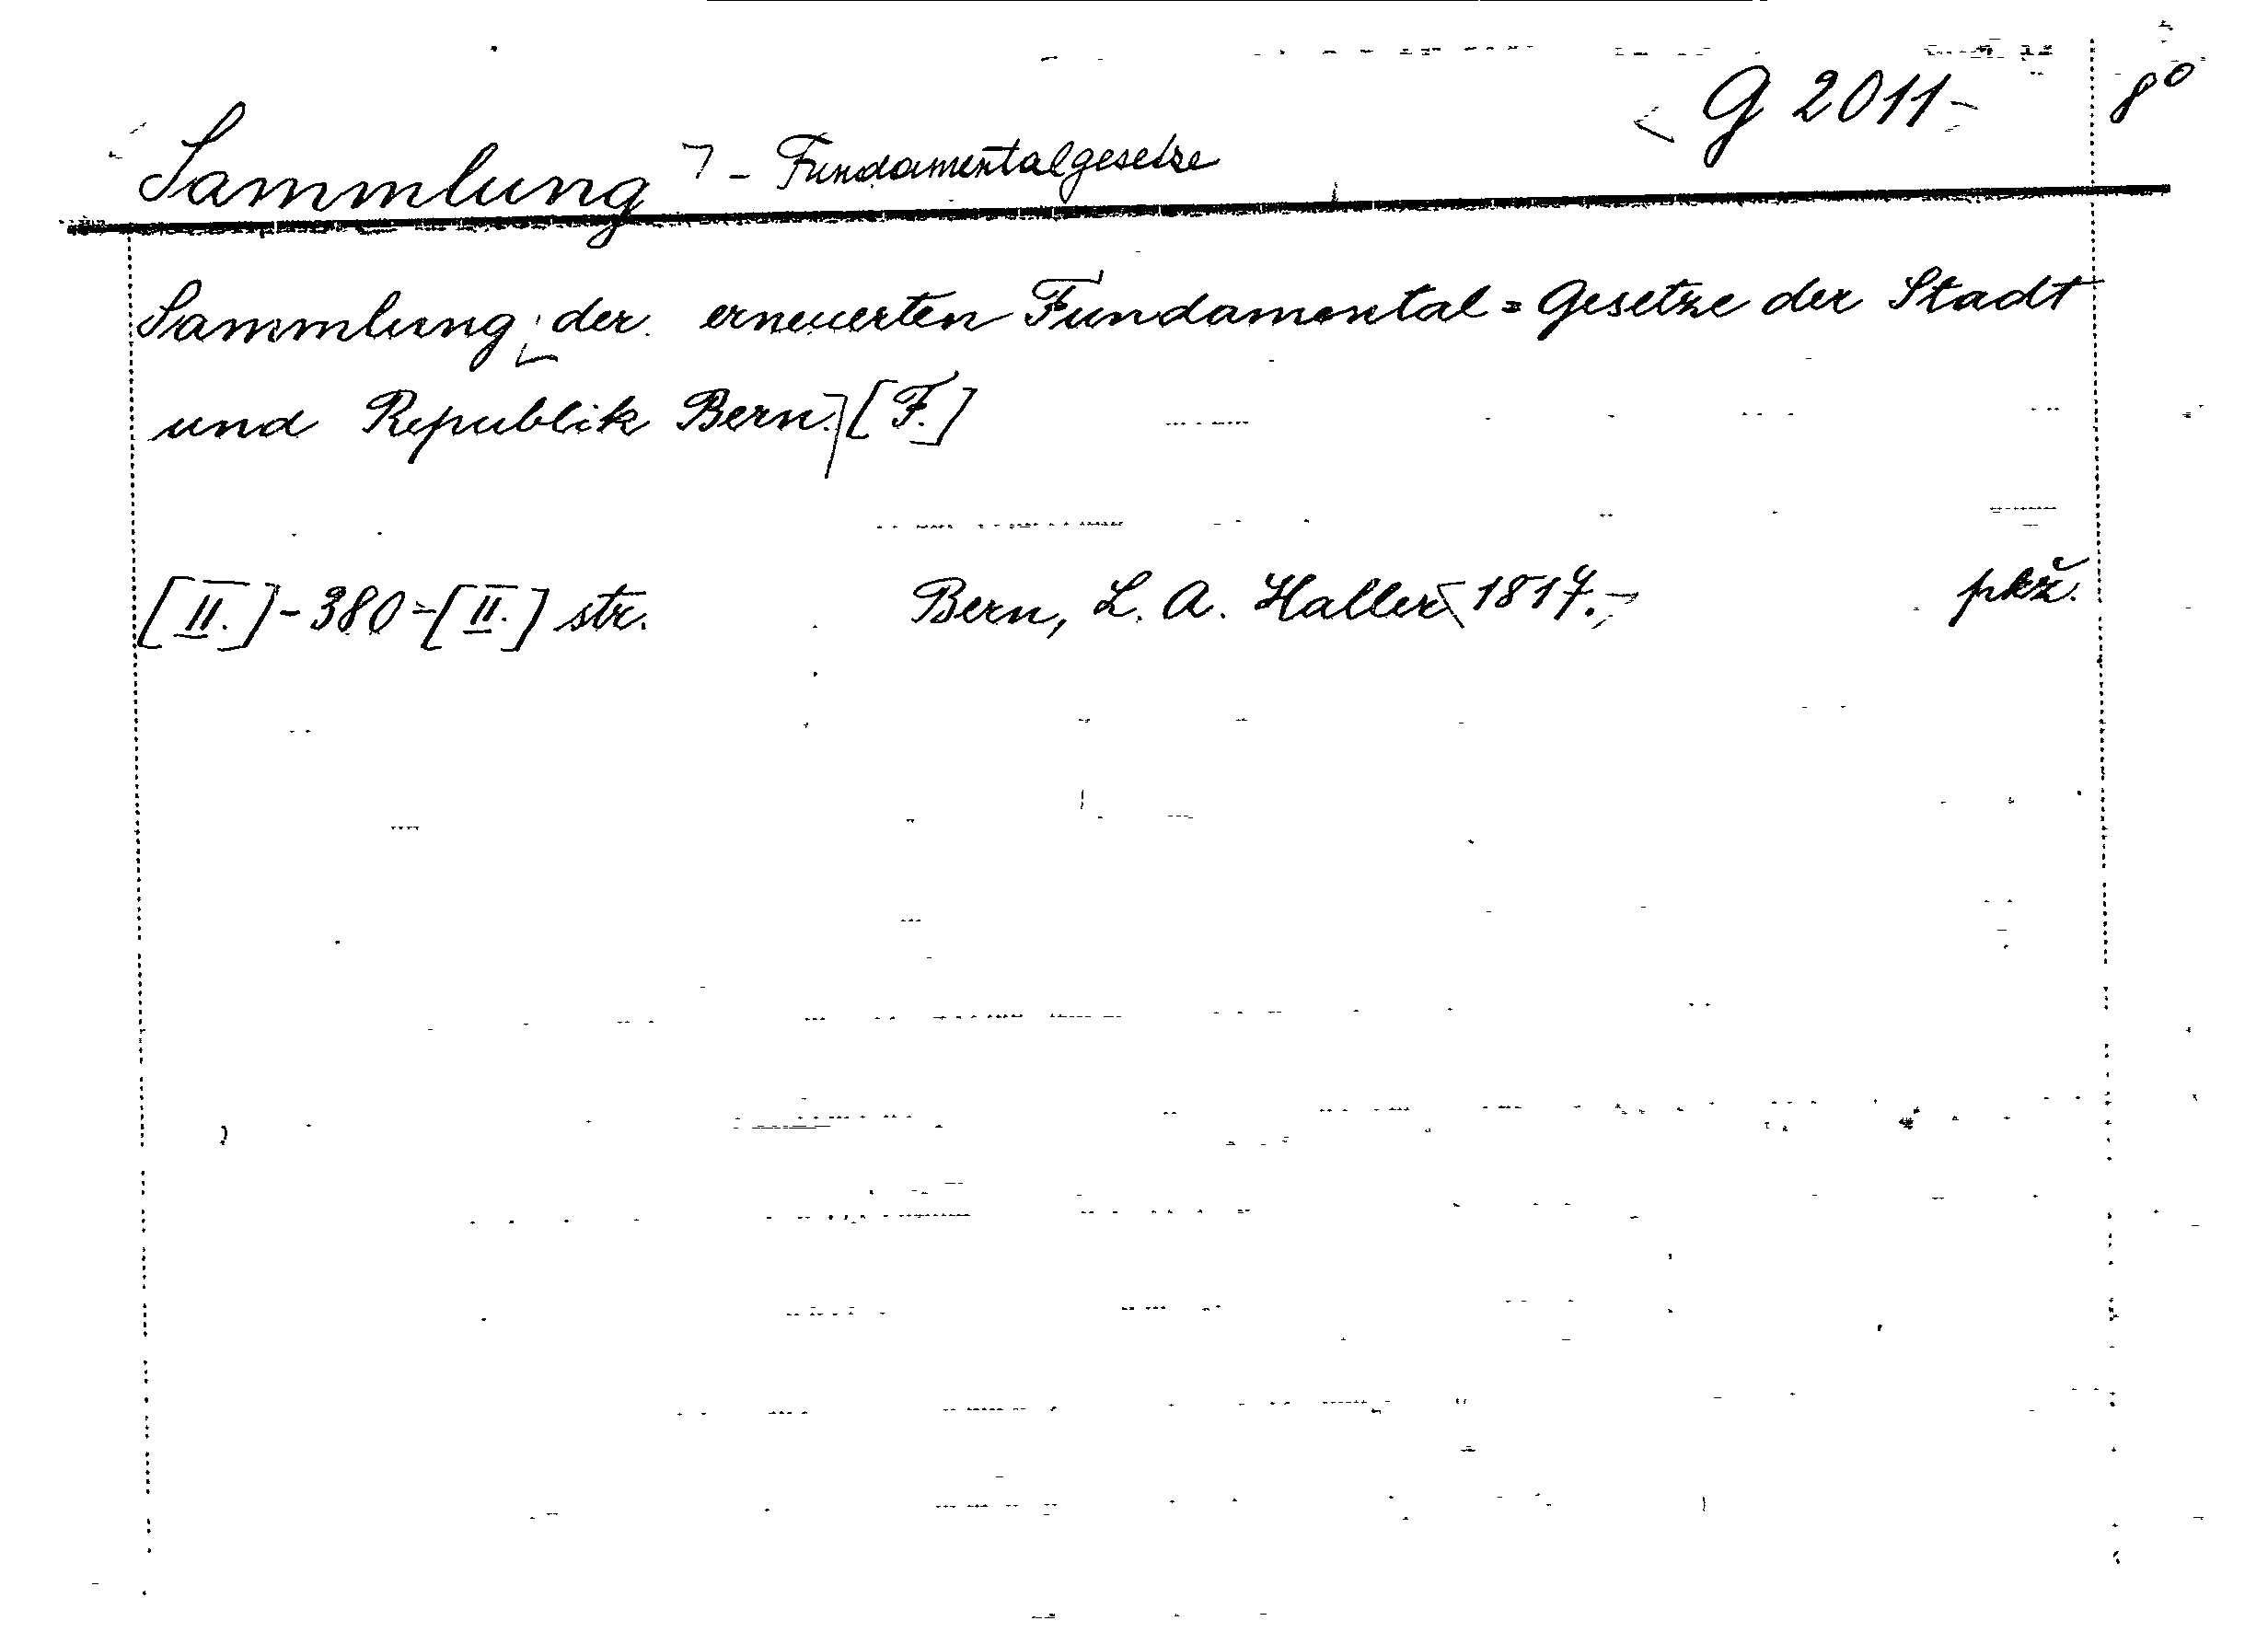 G 2011 8⁰
Sammlung - Fundamentalgesetze
Sammlung der erneuerten Fundamental=Gesetze der Stadt
und Republik Bern. [F.]
[II.]-380-[II.] str. Bern, L. A. Haller 1817. pkž.